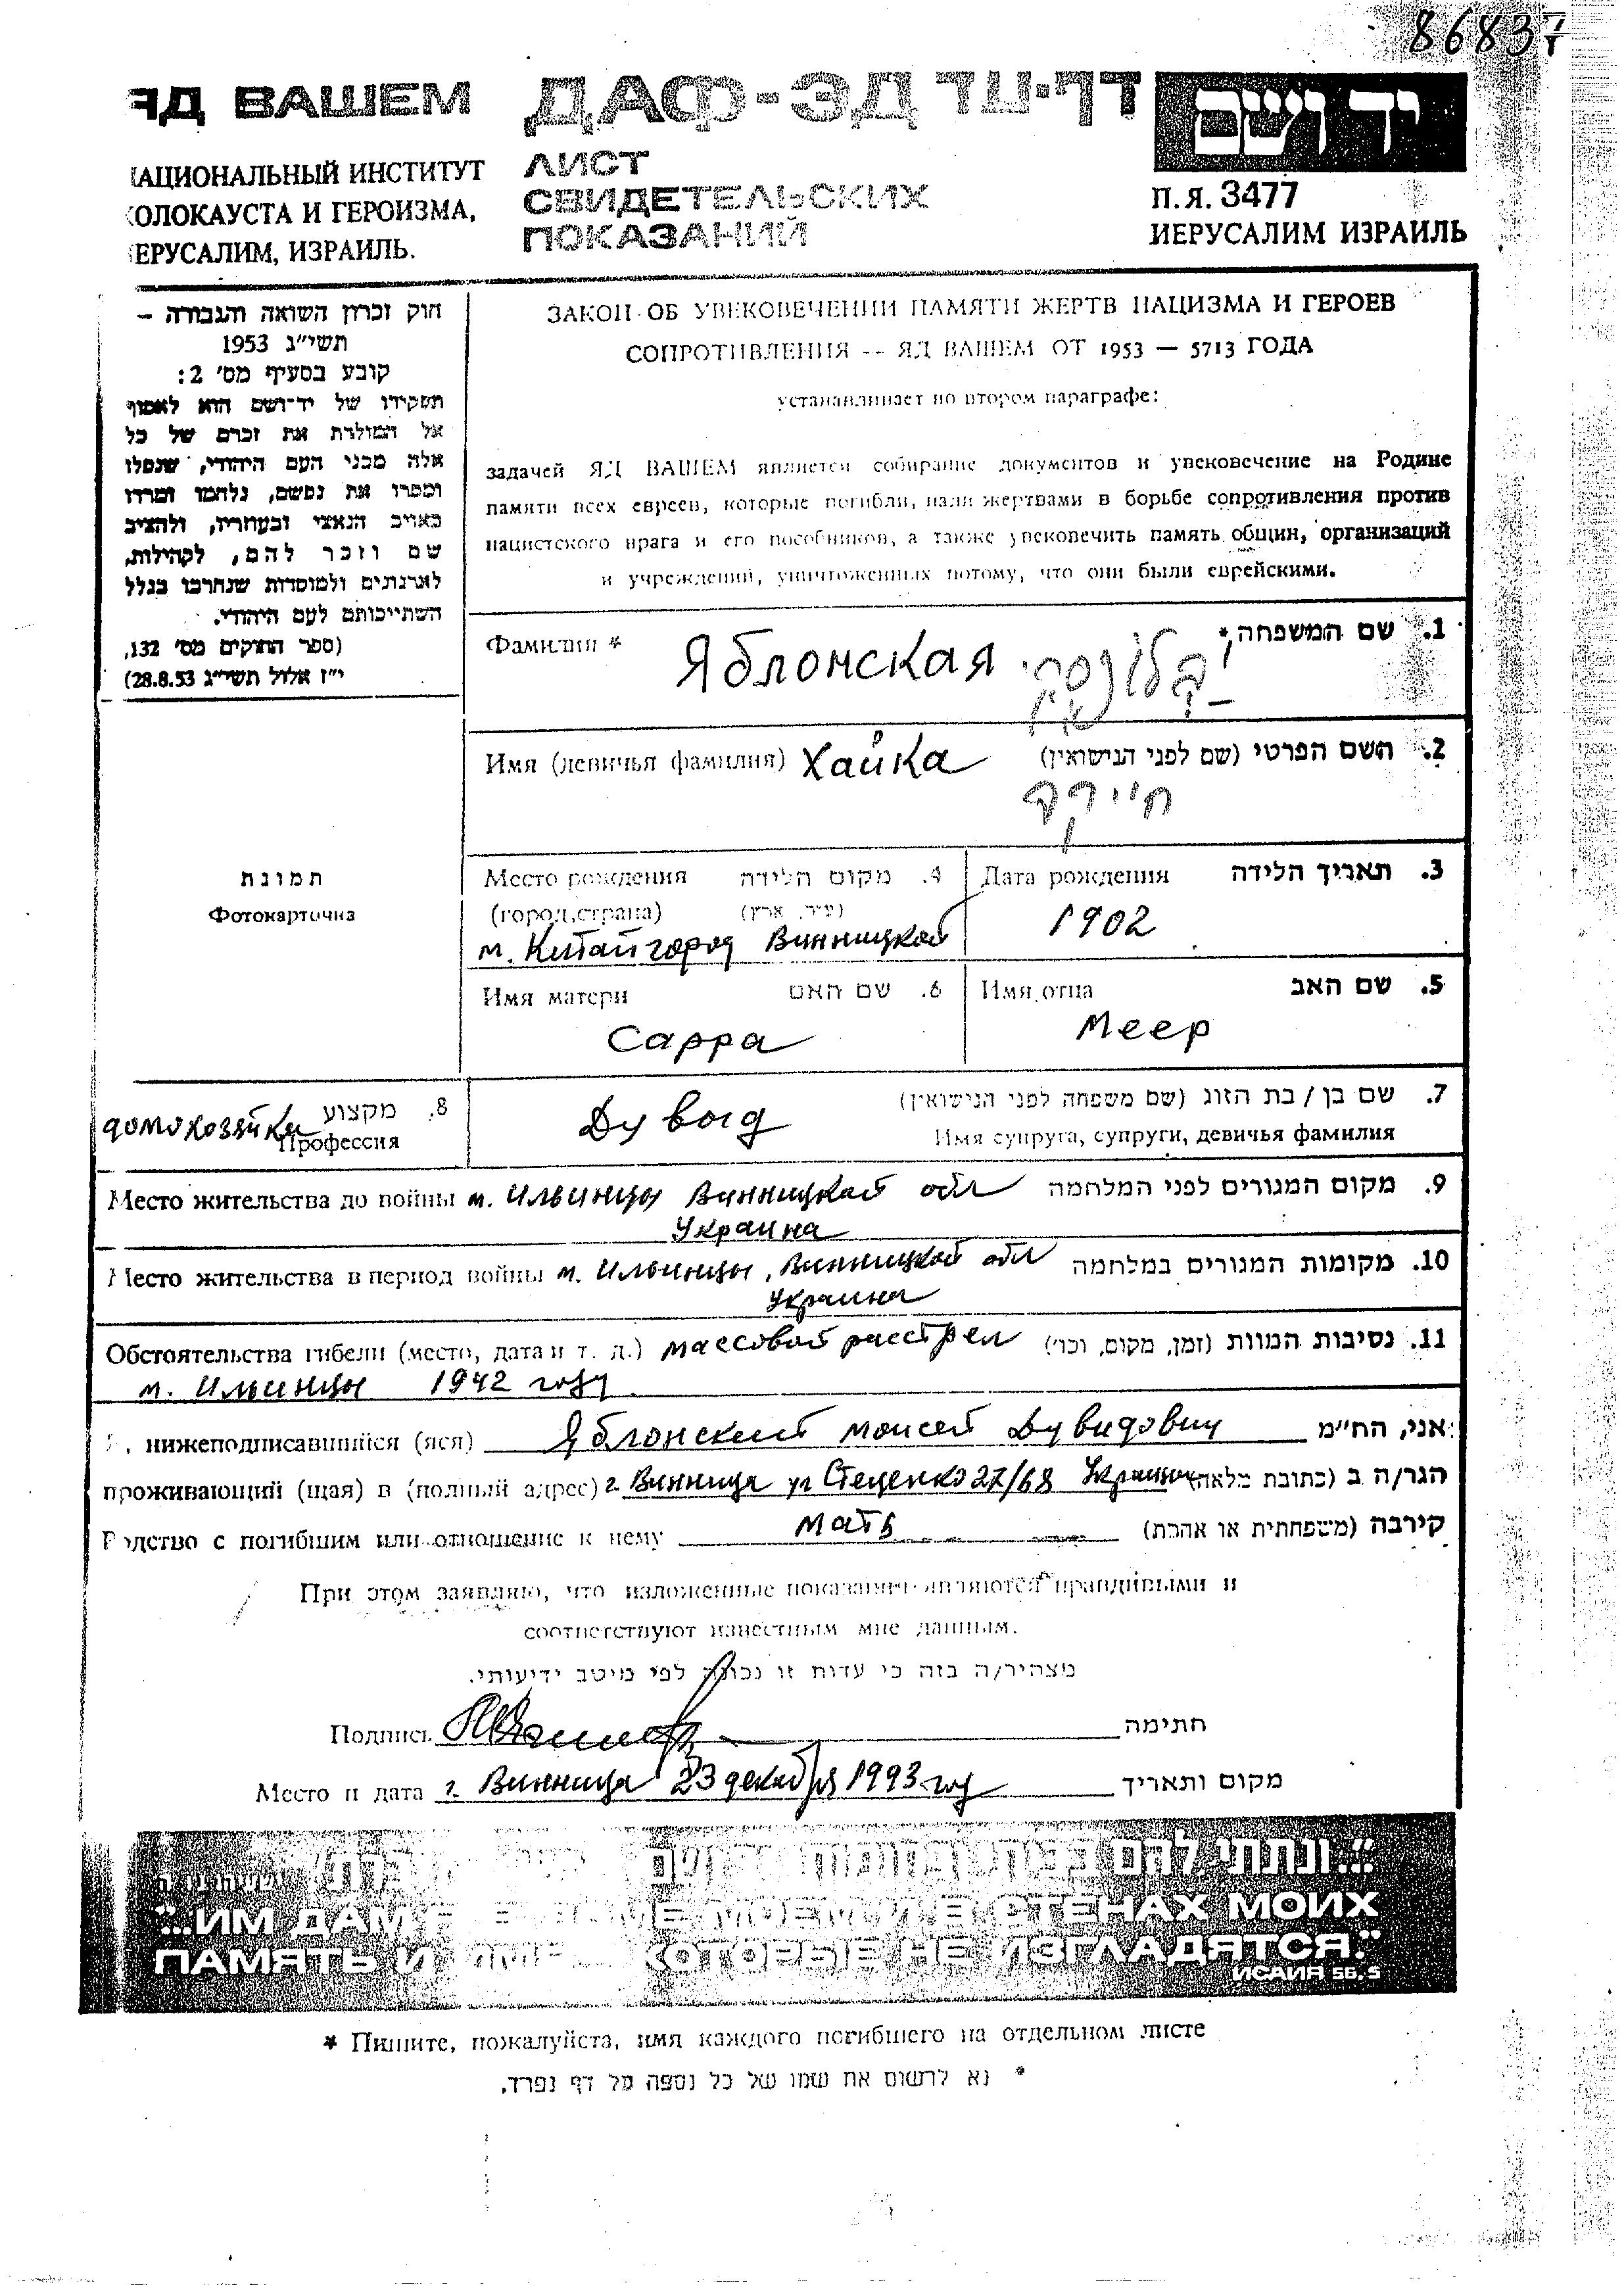 86837
ЯД ВАШЕМ
ДАФ-ЭД דף-עד
יד ושם
НАЦИОНАЛЬНЫЙ ИНСТИТУТ
ХОЛОКАУСТА И ГЕРОИЗМА,
ИЕРУСАЛИМ, ИЗРАИЛЬ.
ЛИСТ
СВИДЕТЕЛЬСКИХ
ПОКАЗАНИЙ
П.Я. 3477
ИЕРУСАЛИМ ИЗРАИЛЬ
חוק זכרון השואה והגבורה –
תשי״ג 1953
קובע בסעיף מס׳ 2:
תפקידו של יד־ושם הוא לאסוף
אל המולדת את זכרם של כל
אלה מבני העם היהודי, שנפלו
ומסרו את נפשם, נלחמו ומרדו
באויב הנאצי ובעוזריו, ולהציב
שם וזכר להם, לקהילות,
לארגונים ולמוסדות שנחרבו בגלל
השתייכותם לעם היהודי.
(ספר החוקים מס׳ 132,
י״ז אלול תשי״ג 28.8.53)
ЗАКОН ОБ УВЕКОВЕЧЕНИИ ПАМЯТИ ЖЕРТВ НАЦИЗМА И ГЕРОЕВ
СОПРОТИВЛЕНИЯ -- ЯД ВАШЕМ ОТ 1953 — 5713 ГОДА
устанавливает во втором параграфе:
задачей ЯД ВАШЕМ является собирание документов и увековечение на Родине
памяти всех евреев, которые погибли, пали жертвами в борьбе сопротивления против
нацистского врага и его пособников, а также увековечить память общин, организаций
и учреждений, уничтоженных потому, что они были еврейскими.
Фамилия * Яблонская יבלונסקי 1. שם המשפחה*
Имя (девичья фамилия) Хайка 2. השם הפרטי (שם לפני הנישואין)
חייקה
תמונת
Фотокарточка
Место рождения 4. מקום הלידה
(город, страна) (עיר, ארץ)
м. Китайгород Винницкой
Дата рождения 3. תאריך הלידה
1902
Имя матери 6. שם האם
Сарра
Имя отца 5. שם האב
Меер
8. מקצוע
домохозяйка
Профессия
Дувыд 7. שם בן / בת הזוג (שם משפחה לפני הנישואין)
Имя супруга, супруги, девичья фамилия
Место жительства до войны м. Ильинцы Винницкой обл 9. מקום המגורים לפני המלחמה
Украина
Место жительства в период войны м. Ильинцы, Винницкой обл 10. מקומות המגורים במלחמה
Украина
Обстоятельства гибели (место, дата и т. д.) массовой расстрел 11. נסיבות המוות (זמן, מקום, וכו׳)
м. Ильинцы 1942 году
Я, нижеподписавшийся (яся) Яблонский Моисей Дувидович אני, הח״מ
проживающий (щая) в (полный адрес) г. Винница ул Стеценко 27/68 Украина הגר/ה ב (כתובת מלאה)
Родство с погибшим или отношение к нему мать קירבה (משפחתית או אחרת)
При этом заявляю, что изложенные показания являются правдивыми и
соответствуют известным мне данным.
מצהיר/ה בזה כי עדות זו נכונה לפי מיטב ידיעותי.
Подпись חתימה
Место и дата г. Винница 23 декабря 1993 год מקום ותאריך
"...ונתתי להם בביתי ובחומותי יד ושם
"...ИМ ДАМ Я В ДОМЕ МОЕМ И В СТЕНАХ МОИХ
ПАМЯТЬ И ИМЯ... КОТОРЫЕ НЕ ИЗГЛАДЯТСЯ."
ИСАИЯ 56, 5
* Пишите, пожалуйста, имя каждого погибшего на отдельном листе
* נא לרשום את שמו של כל נספה על דף נפרד.